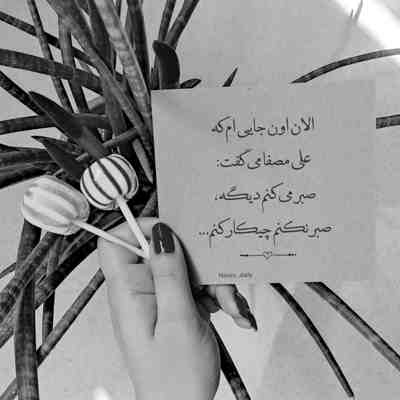 الان اون جایی ام که
علی مصفا می گفت:
صبر می کنم دیگه،
صبر نکنم چیکار کنم...